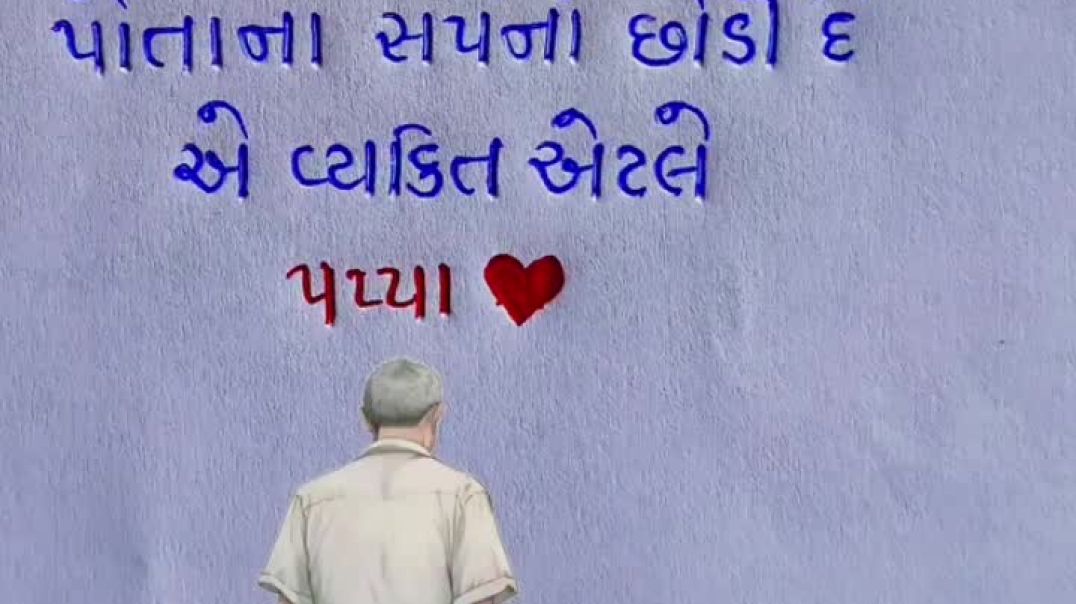 પોતાના સપના છોડી દ
એ વ્યકિત એટલે
પપ્પા